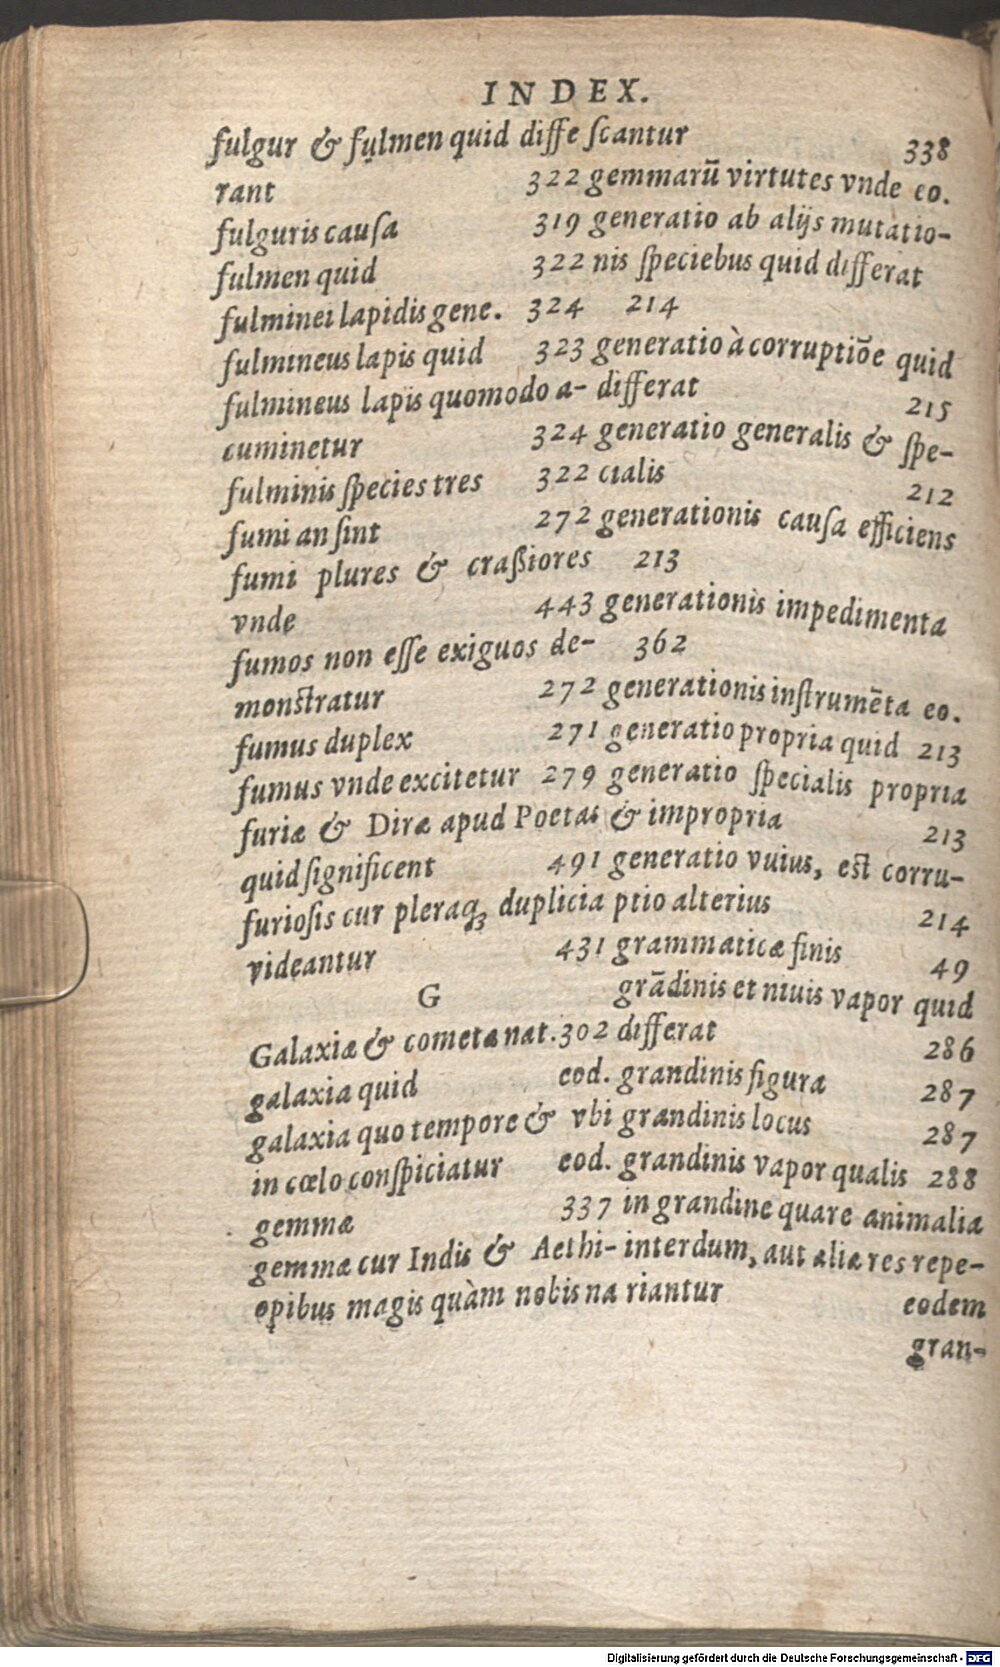 INDEX.
fulgur & fulmen quid diffe
rant 322
fulguris cauſa 319
fulmen quid 322
fulminei lapidis gene. 324
fulmineus lapis quid 323
fulmineus lapis quomodo a-
cuminetur 324
fulminis ſpecies tres 322
fumi an ſint 272
fumi plures & craßiores
vnde 443
fumos non eſſe exiguos de-
monſtratur 272
fumus duplex 271
fumus vnde excitetur 279
furiæ & Diræ apud Poetas
quid ſignificent 491
furioſis cur pleraq₃ duplicia
videantur 431
G
Galaxiæ & cometa nat. 302
galaxia quid eod.
galaxia quo tempore & vbi
in cœlo conſpiciatur eod.
gemmæ 337
gemmæ cur Indis & Aethi-
opibus magis quàm nobis na
ſcantur 338
gemmarũ virtutes vnde eo.
generatio ab alijs mutatio-
nis ſpeciebus quid differat
214
generatio à corruptiõe quid
differat 215
generatio generalis & ſpe-
cialis 212
generationis cauſa efficiens
213
generationis impedimenta
362
generationis inſtrumẽta eo.
generatio propria quid 213
generatio ſpecialis propria
& impropria 213
generatio vuius, eſt corru-
ptio alterius 214
grammaticæ finis 49
grãdinis et niuis vapor quid
differat 286
grandinis figura 287
grandinis locus 287
grandinis vapor qualis 288
in grandine quare animalia
interdum, aut aliæ res repe-
riantur eodem
gran-
Digitalisierung gefördert durch die Deutsche Forschungsgemeinschaft - DFG